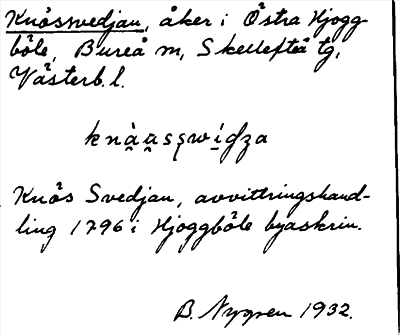 Knössvedjan, åker i Östra Hjogg-
böle, Bureå sn, Skellefteå tg,
Västerb. l.
Knös Svedjan, avvittringshand-
ling 1796 i Hjoggböle byaskrin.
B. Nygren 1932.